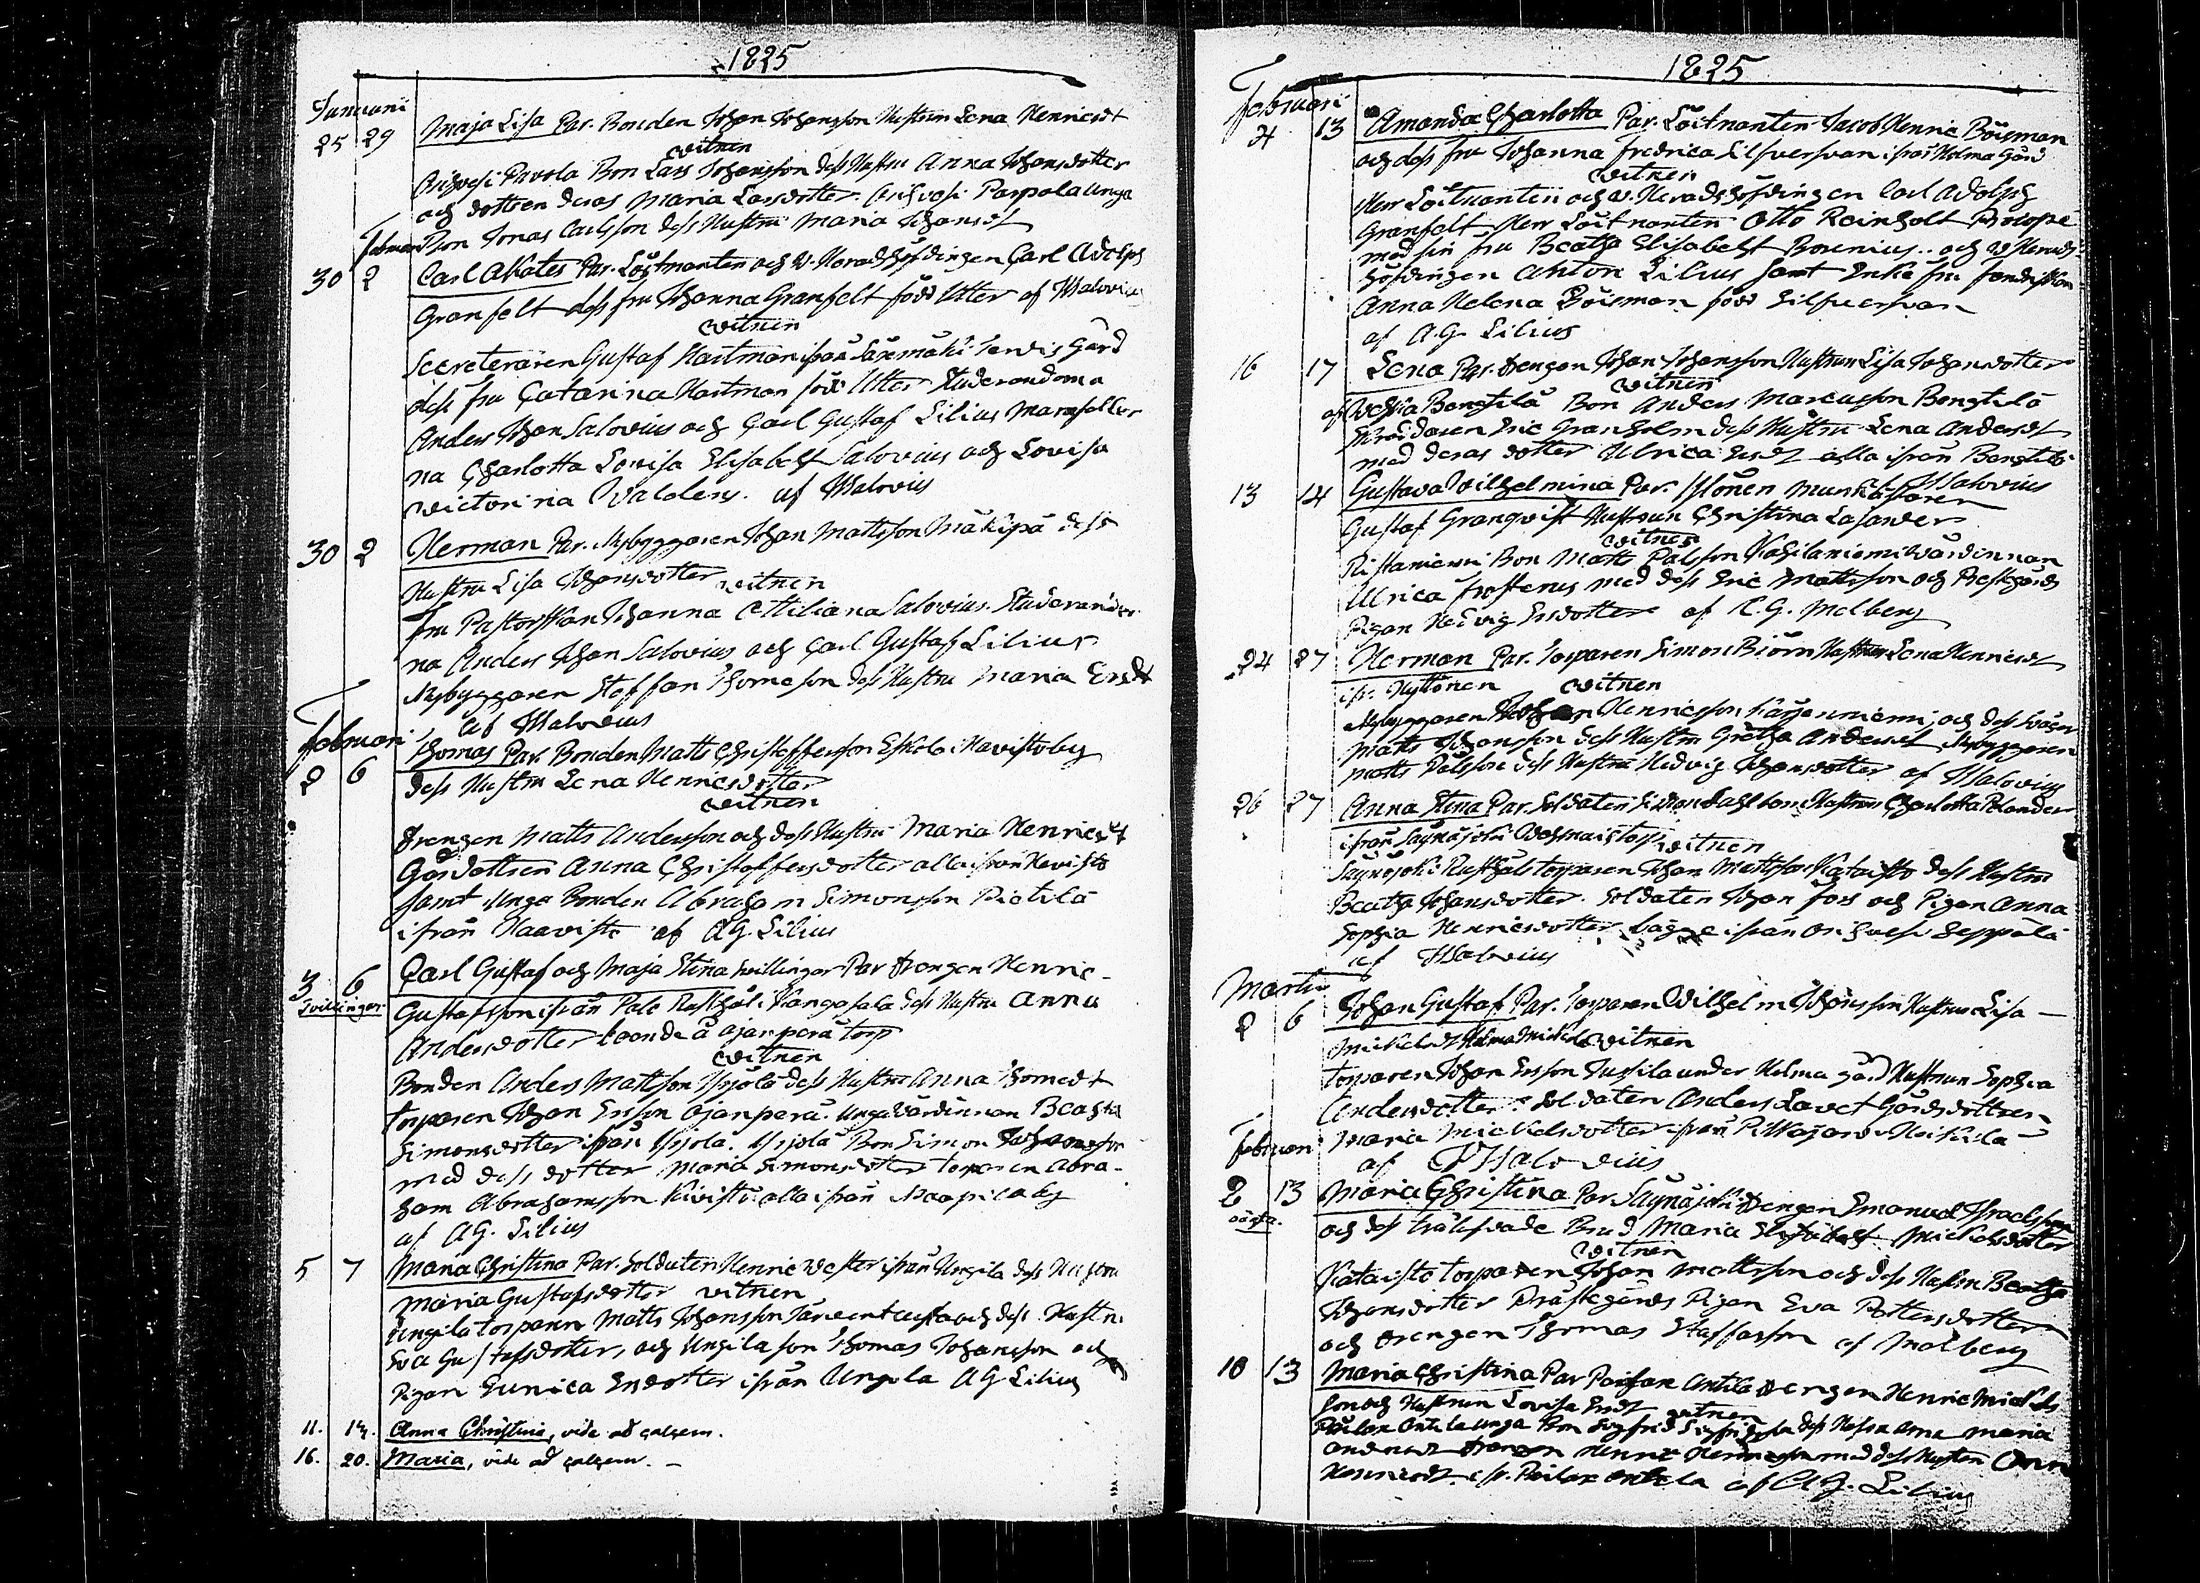 1825
Januarii
25 29 Maja Lisa Par. Bonden Johan Johansson Hustrun Lena Henricsdt
witnen
Orihvesi Pavola Bon Lars Johansson dess Hustru Anna Johansdotter
och dottren deras Maria Larsdotter. Orihvesi Parpola unga
Februari Bon Jonas Carlsson dess Hustru Maria Johansdt
30 2 Carl Akates Par. Löjtnanten och V. Häradshöfdingen Carl Adolph
Granfelt dess fru Johanna Granfelt född Utter af Salovius
witnen
Secreteraren Gustaf Hartman ifrån Gård
dess fru Catarina Hartman född Utter Studerandena
Anders Johan Salovius och Carl Gustaf Lilius Mamseller
na Charlotta Lovisa Elisabeth Salovius och Lovisa
Victorina Walden. af Salovius
30 2 Herman Par. Nybyggaren Johan Mattsson Mäkipä dess
Hustru Lisa Johansdotter witnen
fru Pastorskan Johanna Salovius. Studerander
na Anders Johan Salovius och Carl Gustaf Lilius
Nybyggaren Steffan Thomeson dess Hustru Maria Ersdt
af Salovius
Februari
2 6 Thomas Par. Bonden Matts Christoffersson Eskola Havistoby
dess Hustru Lena Henricsdotter
witnen
Drengen Matts Andersson och dess Hustru Maria Henricsdt
Gårdottren Anna Christoffersdotter alla ifrån Havisto
samt unga Bonden Abraham Simonsson Pietilä
ifrån Haavisto af AG. Lilius
3 6 Carl Gustaf och Maja Stina tvillingar Par Drengen Henric
tvillingar Gustafsson ifrån Palo Rusthåll i Kangasala dess Hustru Anna
Andersdotter boende å Ojanperä torp
witnen
Bonden Anders Mattsson Yijölä dess Hustru Anna Thomedt
torparen Johan Ersson Ojanperä. Unga Värdinnan Beata
Simonsdotter ifrån Yijola. Yijolä Bon Simon Johansson
med dess dotter Maria Simonsdotter torparen Abra-
ham Abrahamsson Kivistö alla ifrån by
af AG. Lilius
5 7 Maria Christina Par. Soldaten Henric Wester ifrån Ungila dess Hustru
Maria Gustafsdotter witnen
Ungila torparen Matts Johansson och dess Hustru
Eva Gustafsdotter, och Ungila son Thomas Johansson och
Pigan Eunica Ersdotter ifrån Ungila AG Lilius
11. 14. Anna Christina, vide ad calcem.
16. 20. Maria, vide ad calcem. -
1825
Februari
4 13 Amanda Charlotta Par. Löitnanten Jacob Henric Böisman
och dess fru Johanna Fredrica Silfversvan ifrån Holma Gård
witnen
Herr Löitnanten och V. Häradshöfdingen Carl Adolph
Granfelt Herr Löitnanten Otto Reinholt
med sin fru Beatha Elisabeth Bonenius och V Härads
höfdingen Anton Lilius samt Enke fru
Anna Helena Böisman född Silfversvan
af A.G. Lilius
16 17 Lena Par. Drengen Johan Johansson Hustrun Lisa Johansdotter
witnen
af Wehkia Bengtilä Bon Anders Marcusson Bengtilä
Eric Granholm dess Hustru Lena Andersdt
med deras dotter Ulrica Ersdt alla ifrån Bengtilä
af Salovius
13 14 Gustava Wilhelmina Par. Ylönen
Gustaf Granqvist Hustrun Christina Lasander
witnen
Ristaniemi Bon Matts Pålsson Värdinnan
Ulrica med dess Eric Mattsson och Prestgårds
Pigan Hedvig Ersdotter af C.G. Melberg
24 27 Herman Par. Torparen Simon Biörn Hustrun Lena Henricsdt
ifr. Hyttönen witnen
Nybyggaren Johan Henricsson och dess svåger
Matts Johansson dess Hustru Gretha Andersdt Nybyggaren
Matts Pålsson dess Hustru Hedvig Johansdotter af Salovius
26 27 Anna Stina Par. Soldaten Simon Hustrun Charlotta Polander
ifrån Säynäjoki witnen
Säynäjoki Rusthåls torparen Johan Mattsson Kataisto dess Hustru
Beatha Johansdotter. Soldaten Johan Fors och Pigan Anna
Sophia Henricsdotter bägge ifrån Orihvesi Seppälä
af Salovius
Martii
2 6 Johan Gustaf Par. Torparen Wilhelm Johansson Hustrun Lisa
Mickelsdt witnen
torparen Johan Ersson Jussila under Holma gård Hustrun Sophia
Andersdotter. Soldaten Anders Gårdsdottren
Maria Mickelsdotter ifrån Heikkilä
af Salovius
Februari
2 13 Maria Christina Par. Säynäjoki Drengen Emanuel Israelsson
och dess Brud Maria Elisabeth Mickelsdotter
witnen
Kataisto torparen Johan Mattsson och dess Hustru Beatha
Johansdotter Prästgårds Pigan Eva Pettersdotter
och Drengen Thomas Staffansson af Molberg
10 13 Maria Christina Par Antila Drengen Henric Mickels
son och Hustrun Lovisa Ersdt witnen
Antila unga Bon Sigfrid Sigfridsson dess Hustru Anna Maria
Andersdt Drengen Henric Henricsson med dess Hustru Anna
Henricsdt ifr. Antila af AG. Lilius